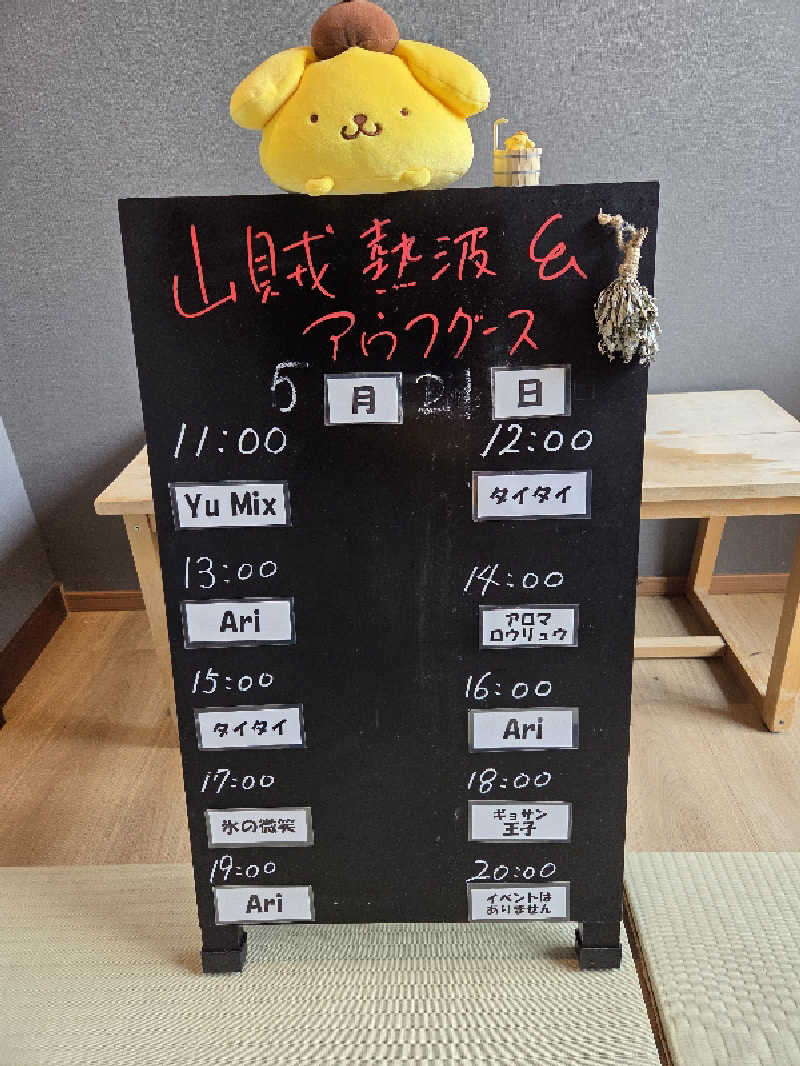 山賊熱波&
アウフグース
5月2 日
11:00 12:00
Yu Mix タイタイ
13:00 14:00
Ari アロマ
ロウリュウ
15:00 16:00
タイタイ Ari
17:00 18:00
氷の微笑 ギョサン
王子
19:00 20:00
Ari イベントは
ありません